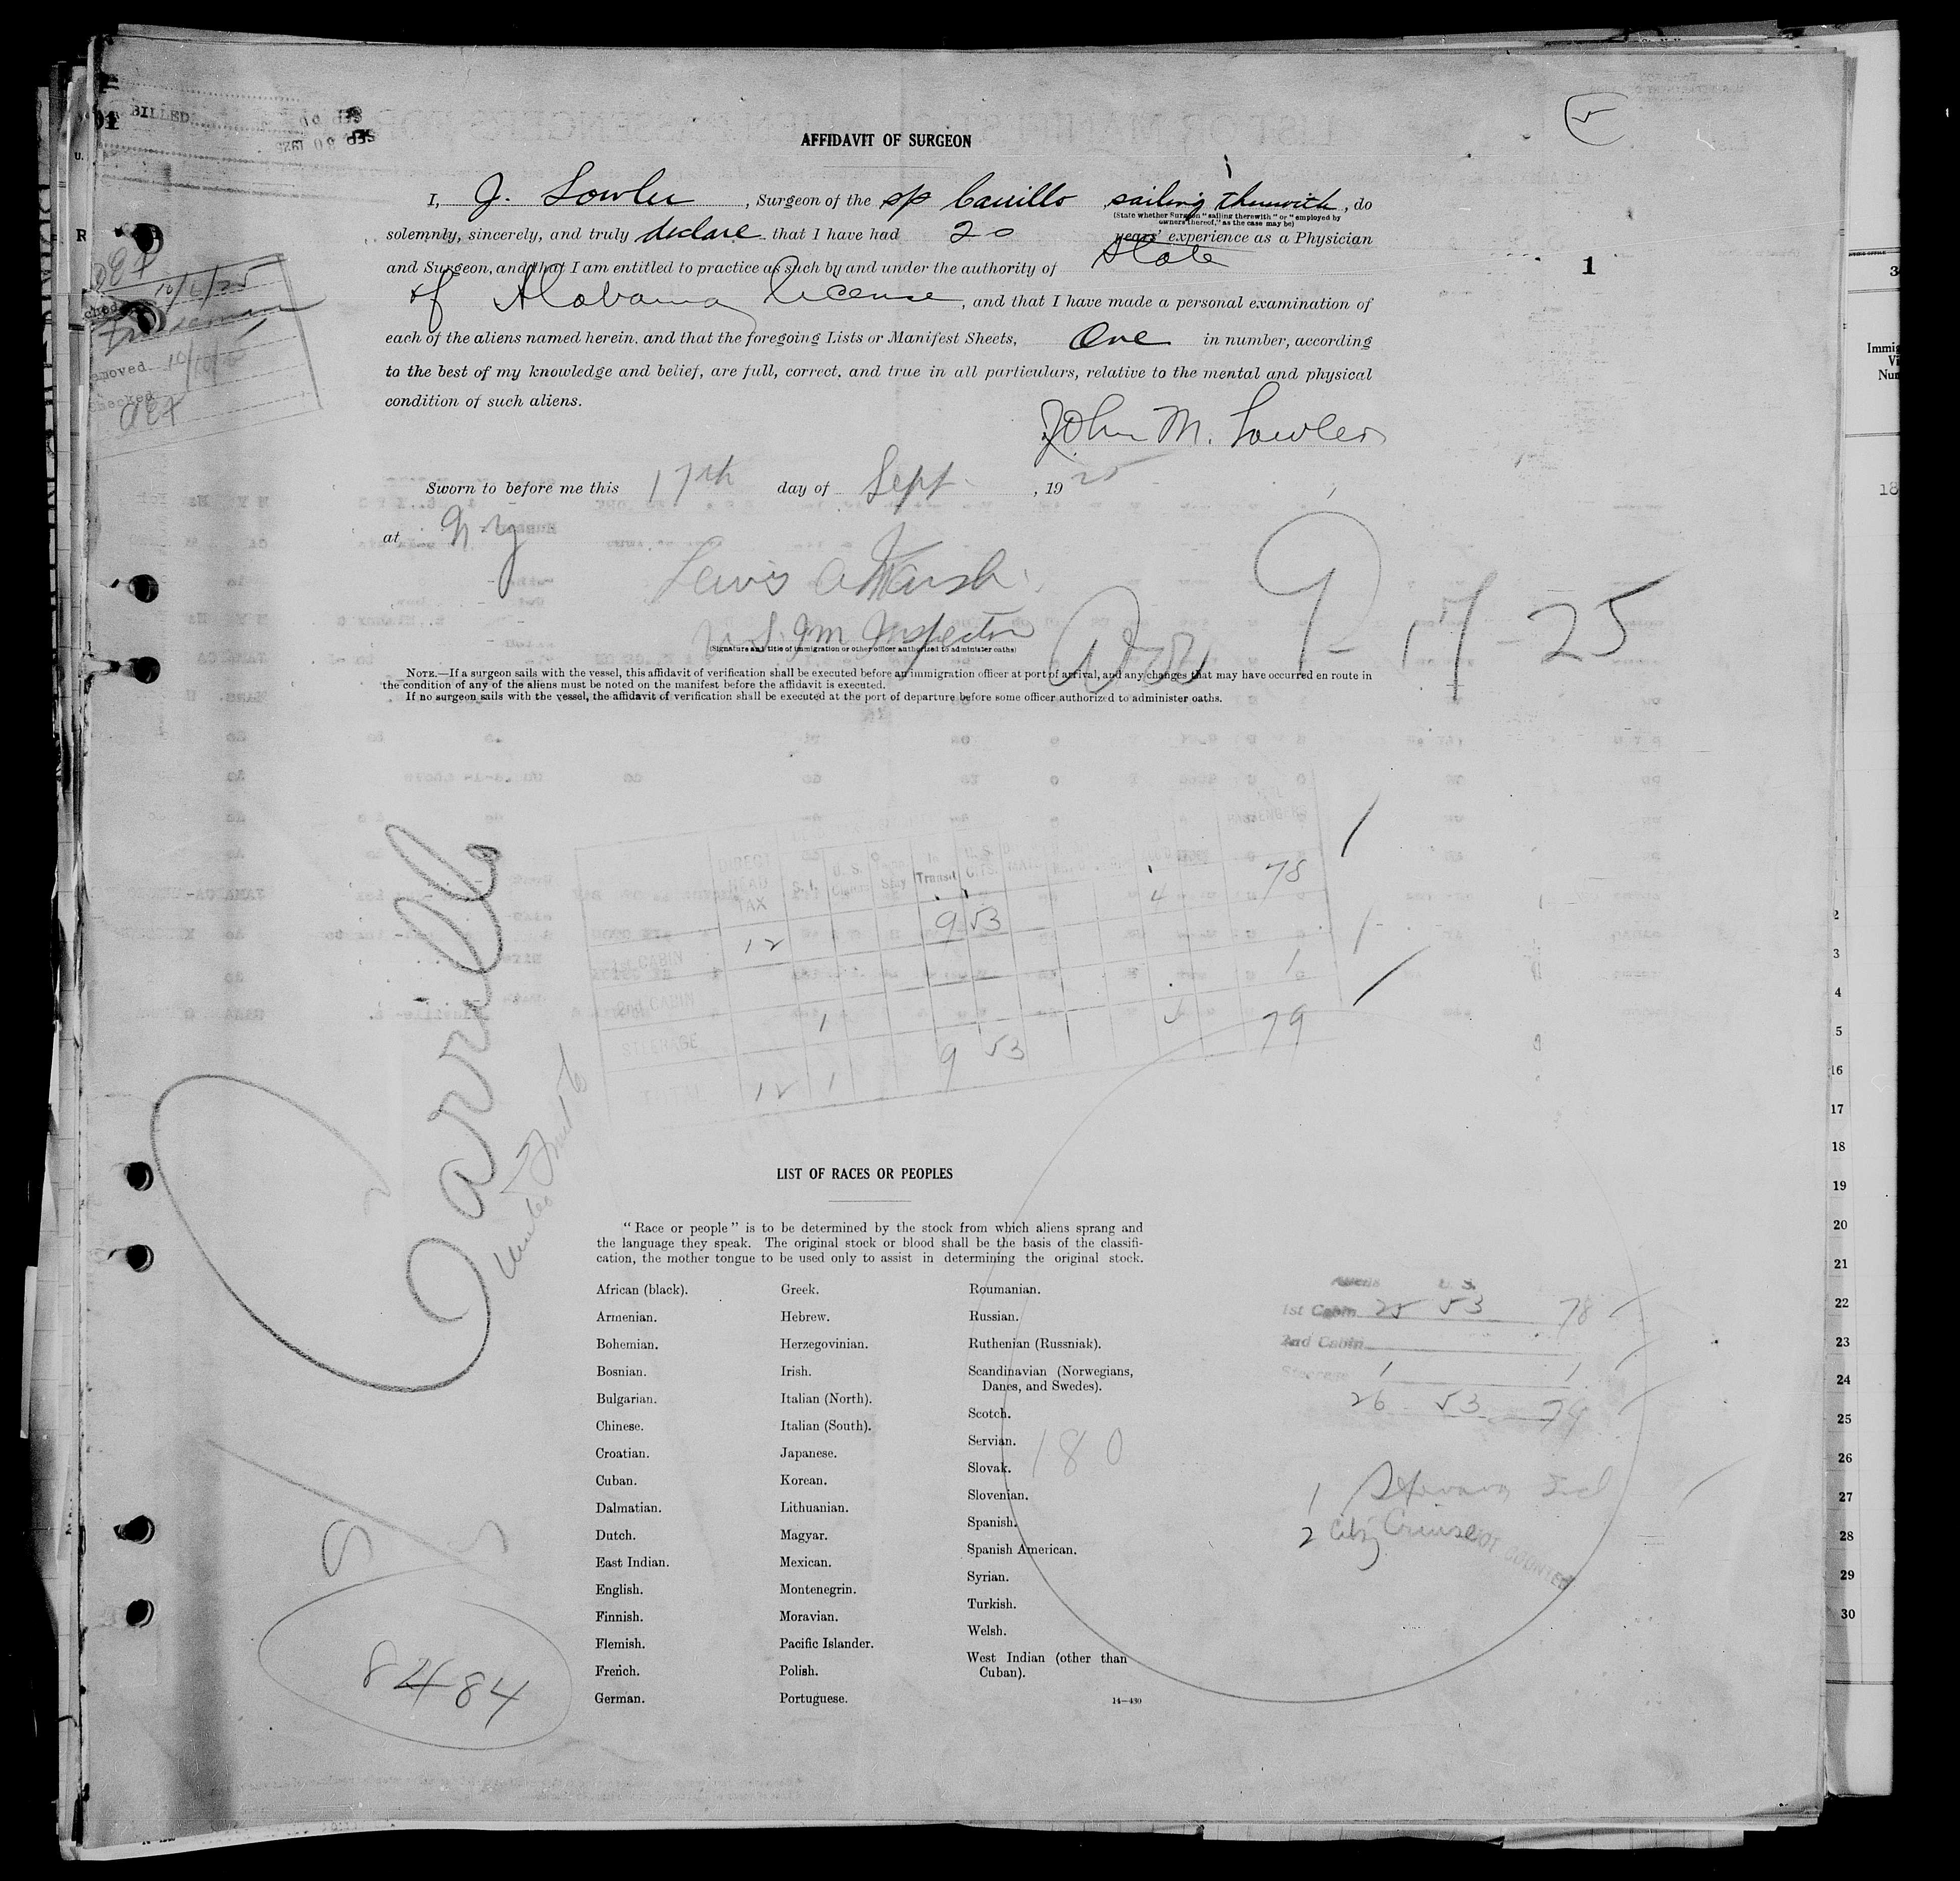 BILLED
SEP 30 1925
AFFIDAVIT OF SURGEON
I, J. Lowler, Surgeon of the sp Carrillo sailing therewith, do
(State whether Surgeon "sailing therewith" or "employed by
owners thereof," as the case may be)
solemnly, sincerely, and truly declare that I have had 20 years' experience as a Physician
and Surgeon, and that I am entitled to practice as such by and under the authority of State
of Alabama license, and that I have made a personal examination of
each of the aliens named herein, and that the foregoing Lists or Manifest Sheets, One in number, according
to the best of my knowledge and belief, are full, correct, and true in all particulars, relative to the mental and physical
condition of such aliens.
John M. Lowler
Sworn to before me this 17th day of Sept., 1925
at N.Y
Lewis A Marsh
Im Inspector
(Signature and title of immigration or other officer authorized to administer oaths)
9-17-25
NOTE.—If a surgeon sails with the vessel, this affidavit of verification shall be executed before an immigration officer at port of arrival, and any changes that may have occurred en route in
the condition of any of the aliens must be noted on the manifest before the affidavit is executed.
If no surgeon sails with the vessel, the affidavit of verification shall be executed at the port of departure before some officer authorized to administer oaths.
1
10/6/25
Carrillo
United Fruit Co
DIRECT HEAD TAX S. I. U. S. Stay In Transit U. S. CITS. PASSENGERS
1st CABIN 12 9 53 4 78
2nd CABIN
STEERAGE 1 1
TOTAL 12 1 9 53 79
LIST OF RACES OR PEOPLES
"Race or people" is to be determined by the stock from which aliens sprang and
the language they speak. The original stock or blood shall be the basis of the classifi-
cation, the mother tongue to be used only to assist in determining the original stock.
African (black).
Armenian.
Bohemian.
Bosnian.
Bulgarian.
Chinese.
Croatian.
Cuban.
Dalmatian.
Dutch.
East Indian.
English.
Finnish.
Flemish.
French.
German.
Greek.
Hebrew.
Herzegovinian.
Irish.
Italian (North).
Italian (South).
Japanese.
Korean.
Lithuanian.
Magyar.
Mexican.
Montenegrin.
Moravian.
Pacific Islander.
Polish.
Portuguese.
Roumanian.
Russian.
Ruthenian (Russniak).
Scandinavian (Norwegians,
Danes, and Swedes).
Scotch.
Servian.
Slovak.
Slovenian.
Spanish.
Spanish American.
Syrian.
Turkish.
Welsh.
West Indian (other than
Cuban).
14—430
Aliens U. S.
1st Cabin 25 53 78
2nd Cabin
Steerage 1 1
26 53 79
180
2 Citz Cruise
NOT COUNTED
8484
2
3
4
5
16
17
18
19
20
21
22
23
24
25
26
27
28
29
30